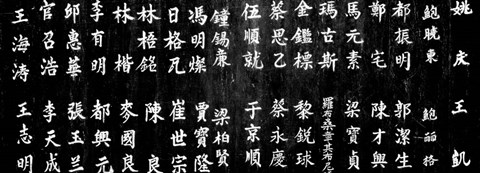 姚戾 王凱
鮑 東 鮑 格
都振明 郭潔生
鄭宅 陳才興
馬元素 梁寶貞
瑪古斯 羅布桑 其布尼
金鑑標 黎銳球
蔡思乙 蔡永慶
伍順就 于京順
鐘錫廉 梁柏賢
馮明燦 賈寶隆
日格瓦 崔世宗
林梧銘 陳良
林楷 麥國良
李有明 都興元
邱惠華 張玉兰
官召浩 李天成
王海涛 王志明